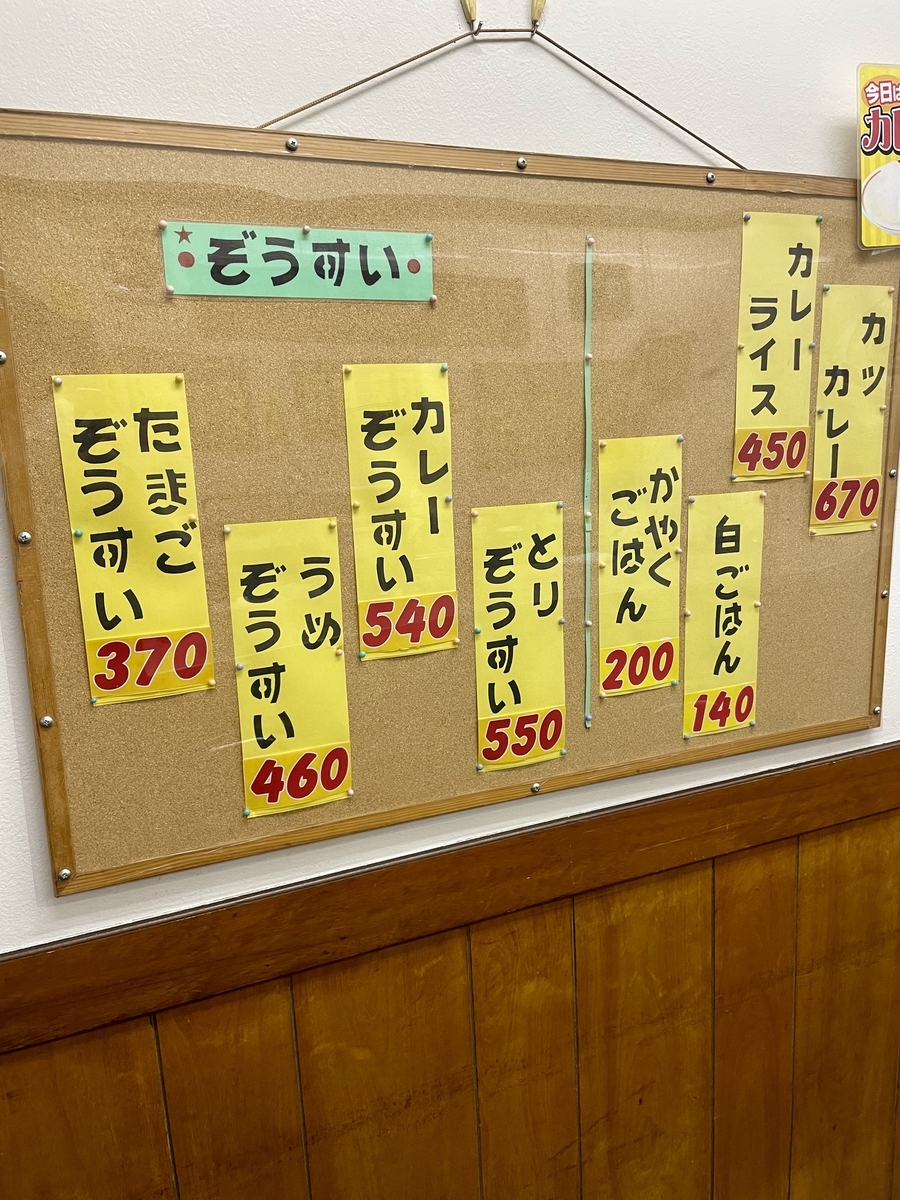 ぞうすい
たまご
ぞうすい
370
うめ
ぞうすい
460
カレー
ぞうすい
540
とり
ぞうすい
550
かやく
ごはん
200
白ごはん
140
カレー
ライス
450
カツ
カレー
670
今日は